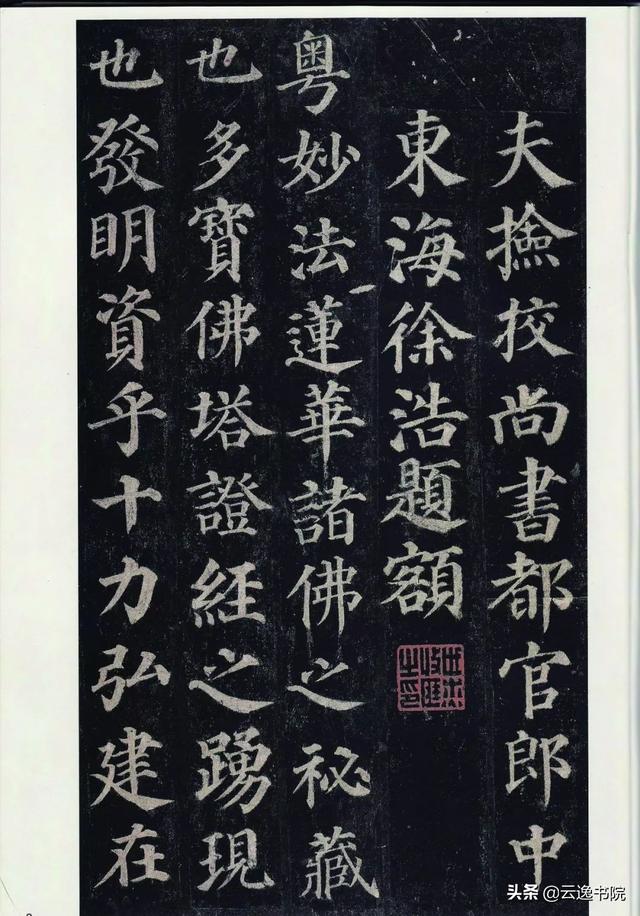 夫撿挍尚書都官郎中
東海徐浩題額
粤妙法蓮華諸佛之祕藏
也多寶佛塔證經之踴現
也發明資乎十力弘建在
头条 @云逸书院